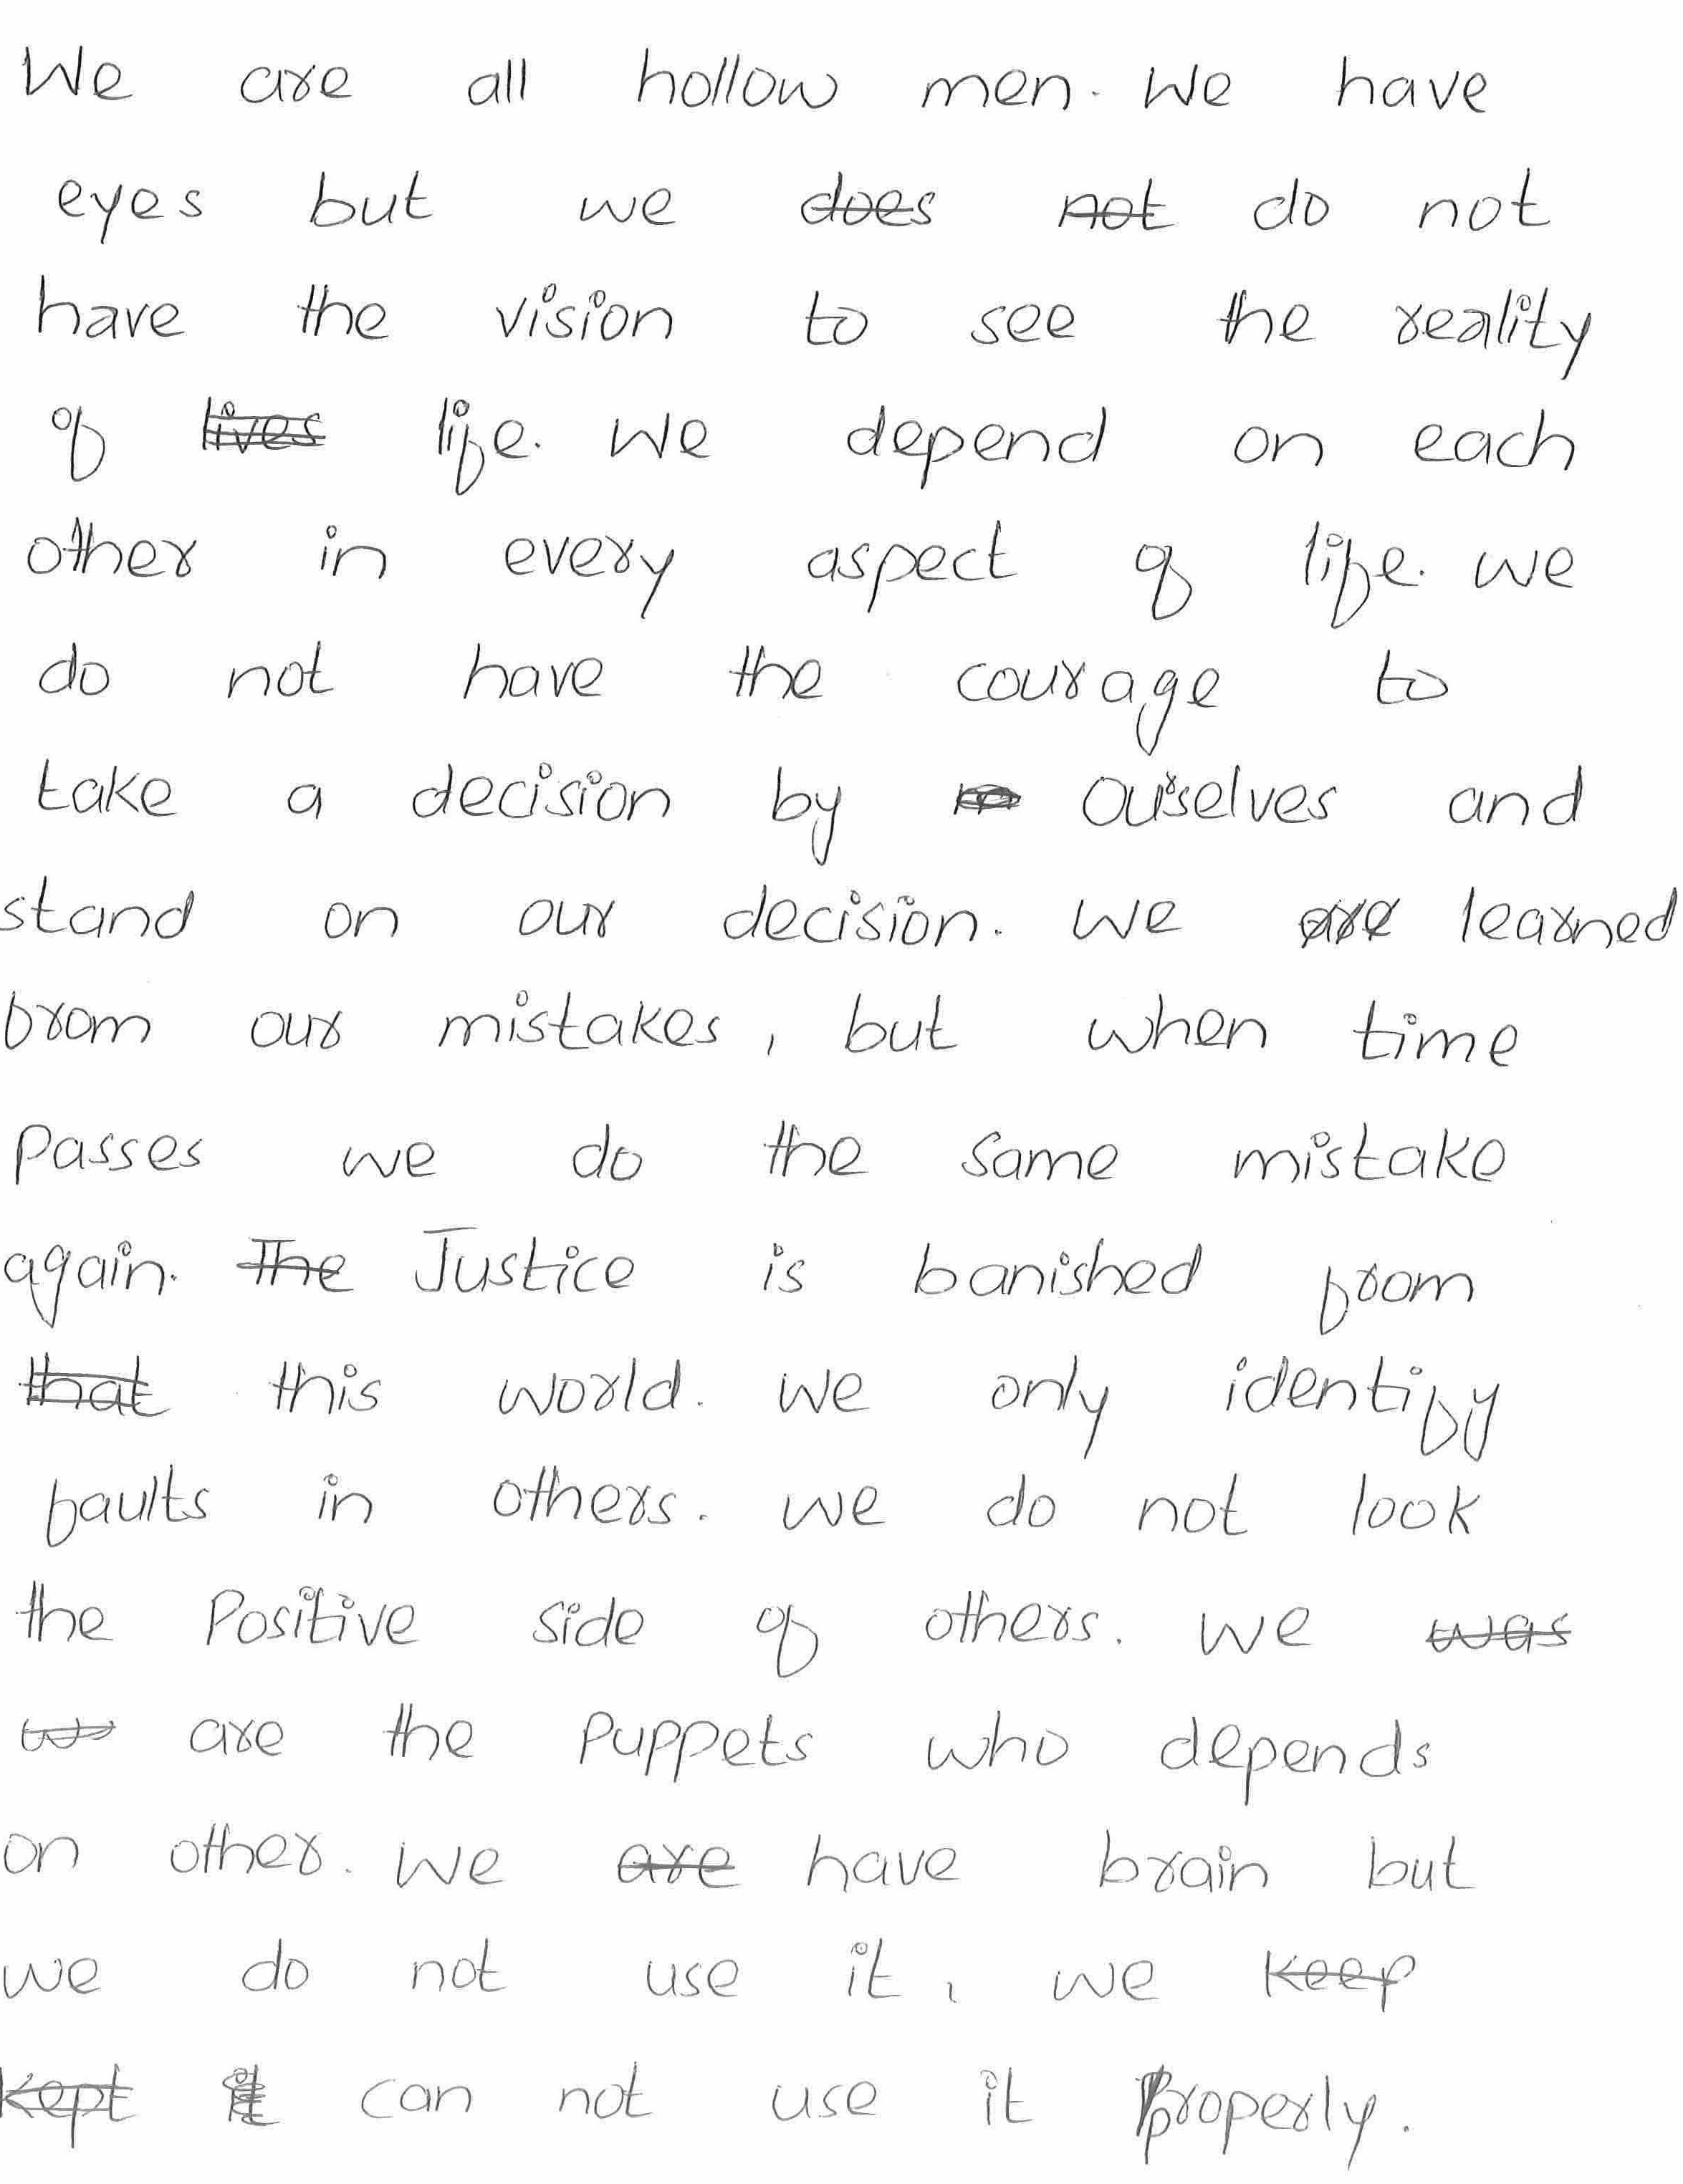 We are all hollow men. We have
eyes but we does not do not
have the vision to see the reality
of lives life. We depend on each
other in every aspect of life. we
do not have the courage to
take a decision by ourselves and
stand on our decision. We are learned
from our mistakes, but when time
passes we do the same mistake
again. The Justice is banished from
that this world. We only identify
faults in others. We do not look
the Positive side of others. We was
are the Puppets who depends
on other. We are have brain but
we do not use it, we keep
kept it can not use it Properly.